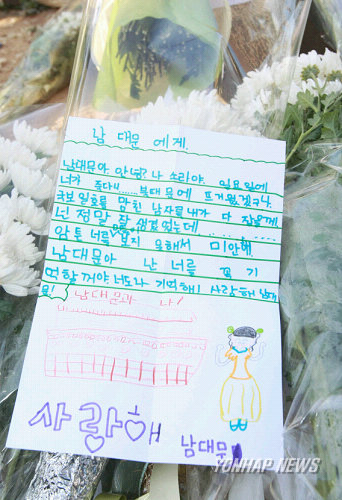 남대문에게.
남대문아 안녕? 나 소라야. 일요일에
너가 죽다니...... 불대문에 뜨거웠겠구나.
국보 일호를 망친 남자를 내가 다 잡을게
넌 정말 잘 생겼었는데
암튼 너를 보지 못해서 미안해.
남대문아 난 너를 꼭 기
억할꺼야 너도 나 기억해! 사랑해 남대
문!
남대문과 나!
사랑해 남대문
YONHAP NEWS